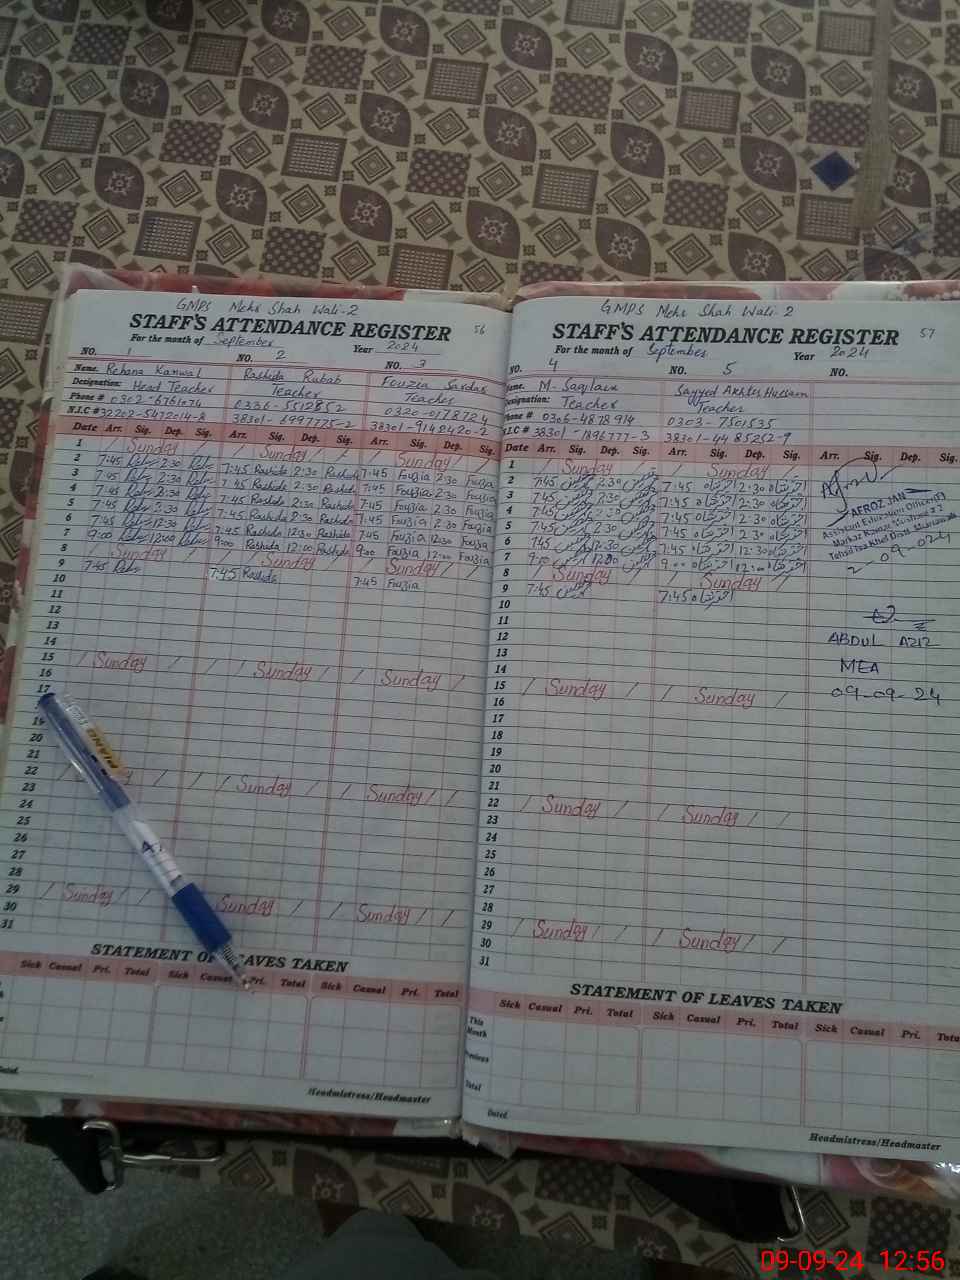 GMPS Mehr Shah Wali-2
STAFF'S ATTENDANCE REGISTER 56
For the month of September Year 2024
NO. 1 NO. 2 NO. 3
Name. Rehana Kanwal Rashida Rubab Fouzia Sardar
Designation: Head Teacher Teacher Teacher
Phone # 0302-6761074 0336-5512852 0320-0178724
N.I.C # 32202-5472014-8 38301-6997775-2 38301-9142420-2
Date Arr. Sig. Dep. Sig. Arr. Sig. Dep. Sig. Arr. Sig. Dep. Sig.
1 / Sunday / / Sunday / / Sunday /
2 7:45 2:30 7:45 Rashida 2:30 Rashida 7:45 Fouzia 2:30 Fouzia
3 7:45 2:30 7:45 Rashida 2:30 Rashida 7:45 Fouzia 2:30 Fouzia
4 7:45 2:30 7:45 Rashida 2:30 Rashida 7:45 Fouzia 2:30 Fouzia
5 7:45 2:30 7:45 Rashida 2:30 Rashida 7:45 Fouzia 2:30 Fouzia
6 7:45 12:30 7:45 Rashida 12:30 Rashida 7:45 Fouzia 12:30 Fouzia
7 9:00 12:00 9:00 Rashida 12:00 Rashida 9:00 Fouzia 12:00 Fouzia
8 / Sunday / / Sunday / / Sunday /
9 7:45 7:45 Rashida 7:45 Fouzia
10
11
12
13
14
15 / Sunday / / / Sunday / / Sunday /
16
17
19
20
21
22 / / / / Sunday / / Sunday / /
23
24
25
26
27
28
29 / Sunday / / Sunday / / Sunday / /
30
31
STATEMENT OF LEAVES TAKEN
Sick Casual Pri. Total Sick Casual Pri. Total Sick Casual Pri. Total
Dated.
Headmistress/Headmaster
GMPS Mehr Shah Wali-2
STAFF'S ATTENDANCE REGISTER 57
For the month of September Year 2024
NO. 4 NO. 5 NO.
Name. M- Saqlain Sayyed Akhter Hussain
Designation: Teacher Teacher
Phone # 0306-4878914 0303-7501535
N.I.C # 38301-1896777-3 38301-4485252-9
Date Arr. Sig. Dep. Sig. Arr. Sig. Dep. Sig. Arr. Sig. Dep. Sig.
1 / Sunday / / Sunday /
2 7:45 2:30 7:45 اخترشاہ 2:30 اخترشاہ
3 7:45 2:30 7:45 اخترشاہ 2:30 اخترشاہ
4 7:45 2:30 7:45 اخترشاہ 2:30 اخترشاہ
5 7:45 2:30 7:45 اخترشاہ 2:30 اخترشاہ
6 7:45 12:30 7:45 اخترشاہ 12:30 اخترشاہ
7 12:00 9:00 اخترشاہ 12:00 اخترشاہ
8 Sunday / / Sunday /
9 7:45 7:45 اخترشاہ
10
11
12
13
14
15 / Sunday / / Sunday /
16
17
18
19
20
21
22 / Sunday / / Sunday /
23
24
25
26
27
28
29 / Sunday / / / Sunday / /
30
31
AFROZ JAN
Assistant Education Officer
Markaz
2-09-024
ABDUL AZIZ
MEA
09-09-24
STATEMENT OF LEAVES TAKEN
Sick Casual Pri. Total Sick Casual Pri. Total Sick Casual Pri. Total
This Month
Previous
Total
Dated
Headmistress/Headmaster
PIANO
09-09-24 12:56